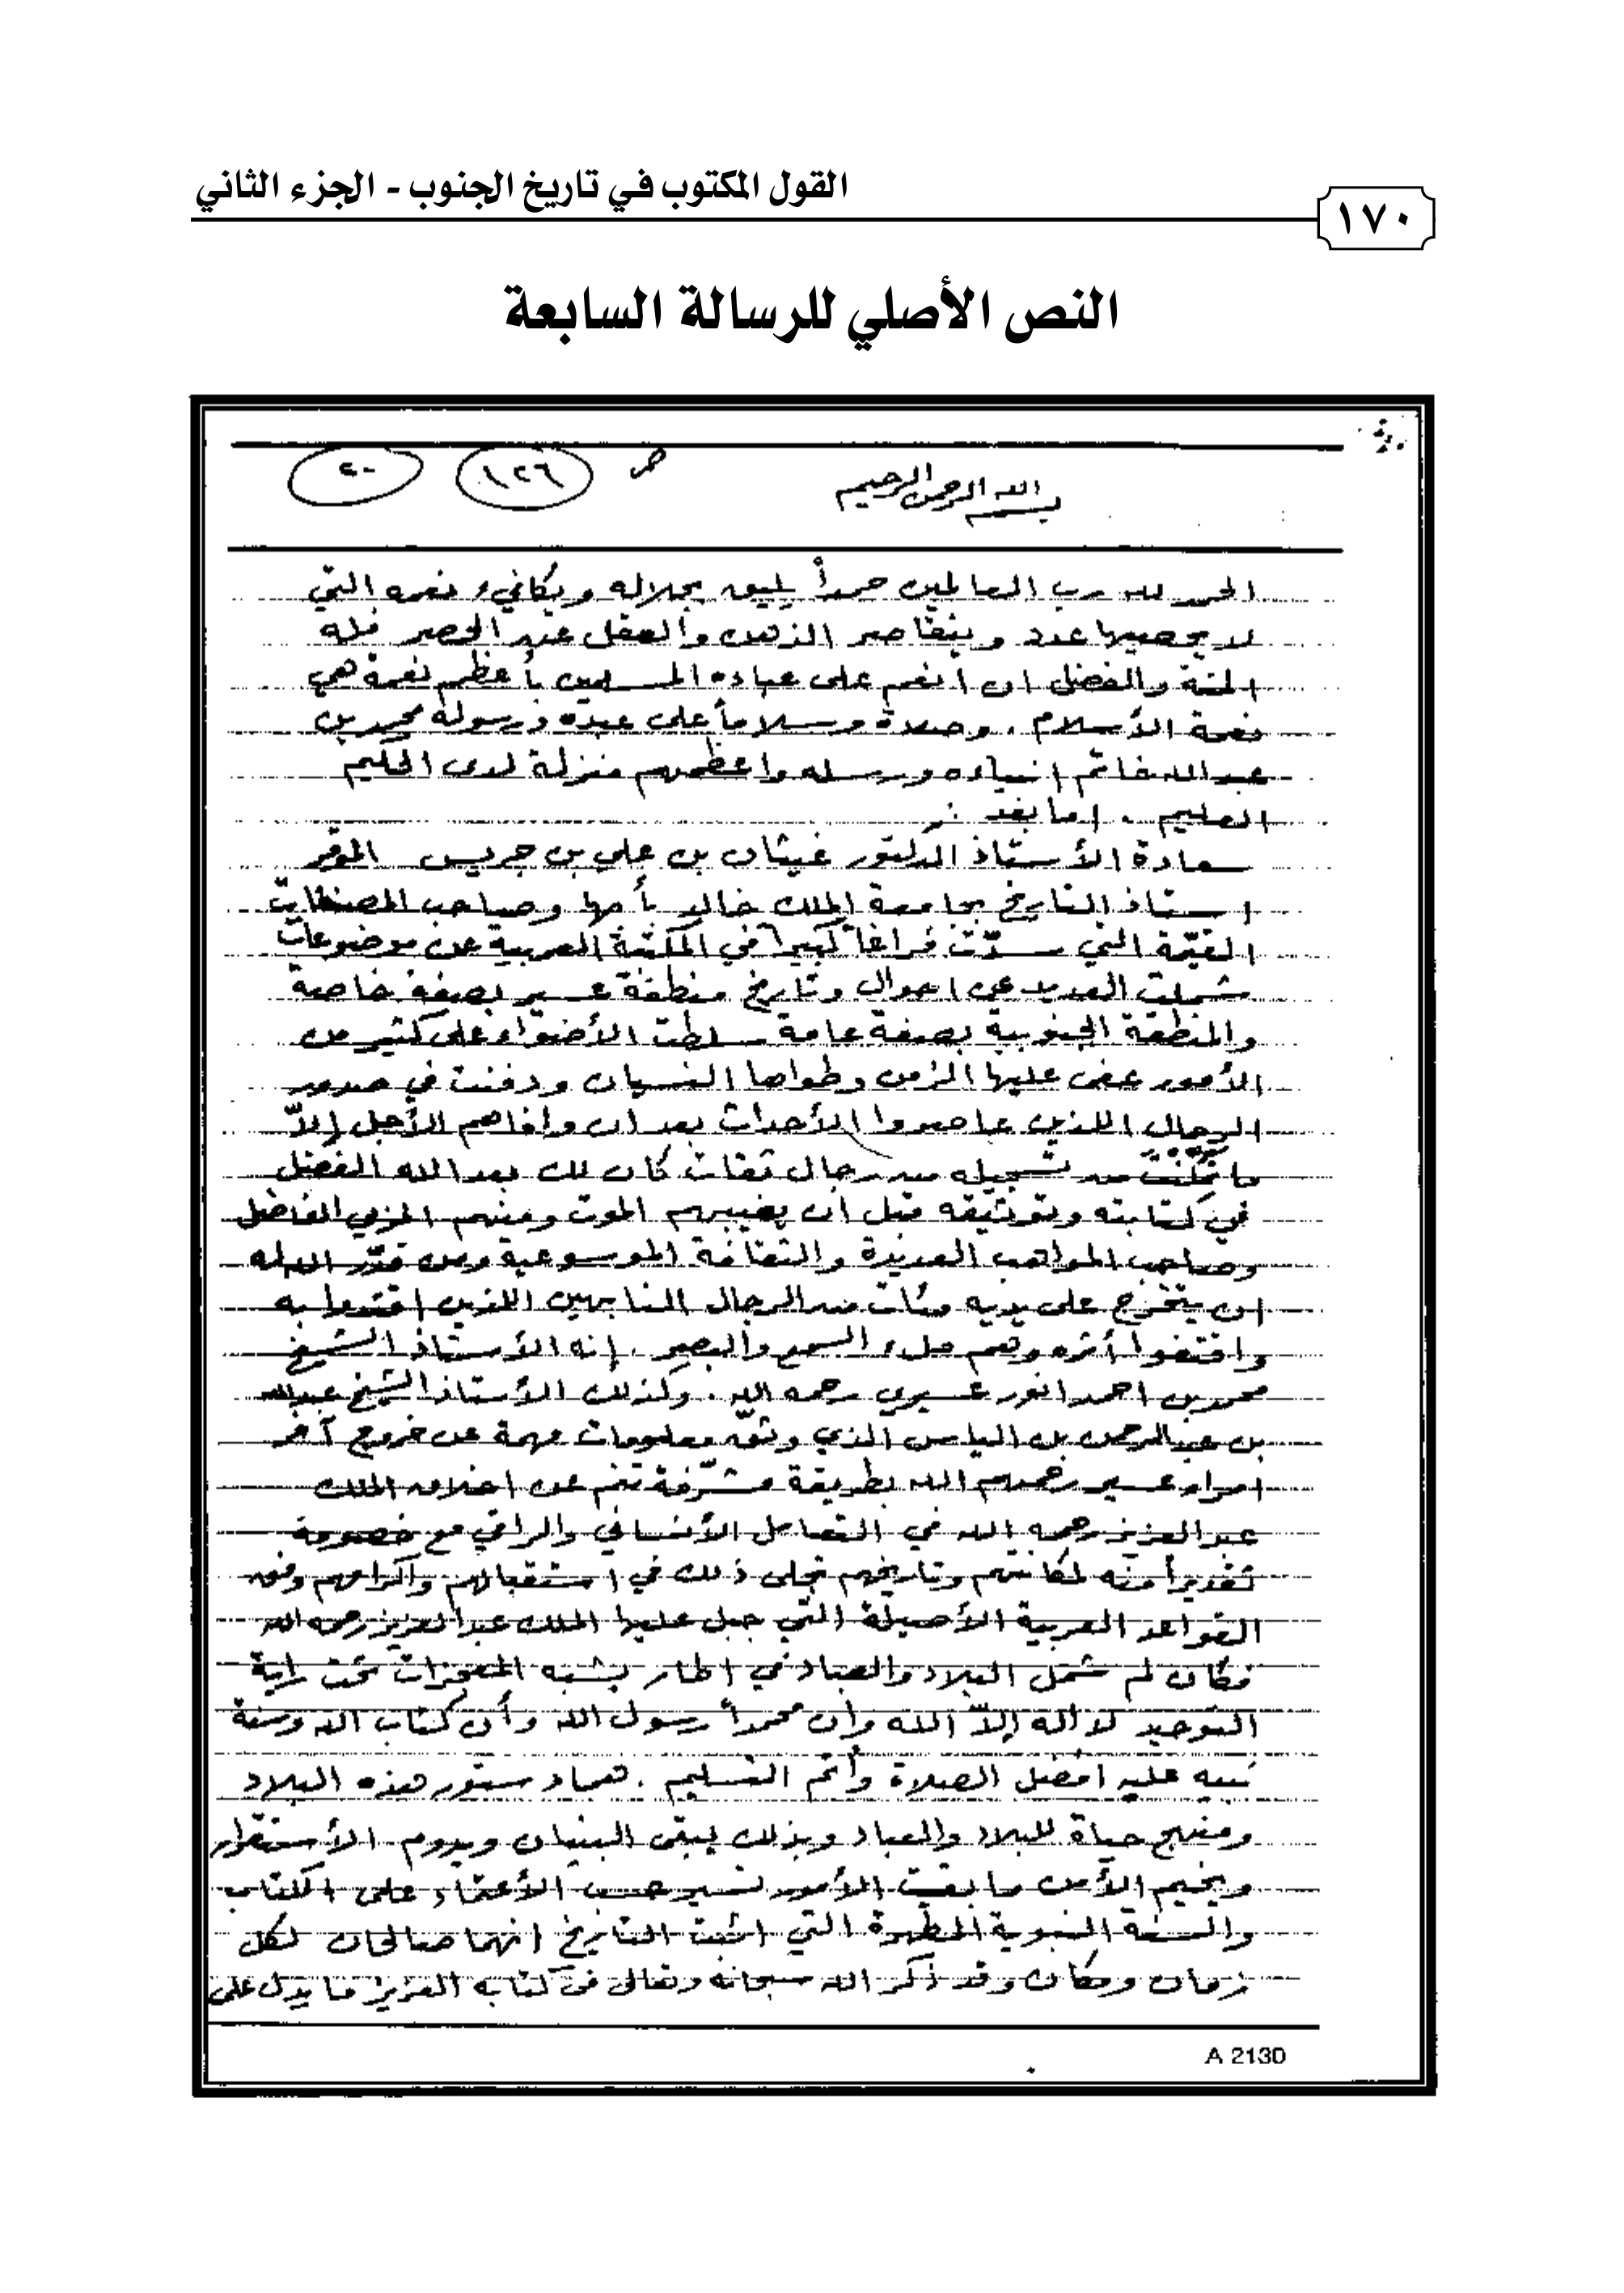 القول المكتوب في تاريخ الجنوب - الجزء الثاني
١٧٠
النص الأصلي للرسالة السابعة
بسم الله الرحمن الرحيم
ص ١٢٦ ٢٠
الحمد لله رب العالمين حمداً يليق بجلاله ويكافيء نعمه التي
لا يحصيها عدد ويتقاصر الذهن والعقل عند الحصر فله
المنة والفضل ان انعم على عباده المسلمين بأعظم نعمة هي
نعمة الأسلام . وصلاة وسلاماً على عبده ورسوله محمد بن
عبدالله خاتم انبياءه ورسله واعظمهم منزلة لدى الحكيم
العليم . اما بعد :ـ
سعادة الأستاذ الدكتور غيثان بن علي بن جريس الموقر
استاذ التاريخ بجامعة الملك خالد بأبها وصاحب المصنفات
القيّمة التي سدّت فراغاً كبيراً في المكتبة العربية عن موضوعات
شملت العديد عن احوال وتاريخ منطقة عسير بصفة خاصة
والمنطقة الجنوبية بصفة عامة سلطت الأضواء على كثير من
الأمور عفى عليها الزمن وطواها النسيان ودفنت في صدور
الرجال اللذين عاصروا الأحداث بعد ان وافاهم الأجل إلاّ
ما تمكنت من تسجيله من رجال ثقات كان لك بعد الله الفضل
في كتابته وتوثيقه قبل ان يغيبهم الموت ومنهم المربي الفاضل
وصاحب المواهب العديدة والثقافة الموسوعية ومن قدّر الله له
ان يتخرج على يديه مئات من الرجال النابهين اللذين اقتدوا به
واقتفوا أثره وهم ملء السمع والبصر . إنه الأستاذ الشيخ
محمد بن احمد انور عسيري رحمه الله . وكذلك الأستاذ الشيخ عبدالله
بن عبدالرحمن بن الياس الذي وثّق معلومات مهمة عن خروج آخر
امراء عسير رحمهم الله بطريقة مشرّفة تنم عن اخلاق الملك
عبدالعزيز رحمه الله في التعامل الأنساني والراقي مع خصومه
تقديراً منه لمكانتهم وتاريخهم تجلى ذلك في استقبالهم واكرامهم وفق
القواعد العربية الأصيلة التي جبل عليها الملك عبدالعزيز رحمه الله
فكان لم شمل البلاد والعباد في اطار يشبه المعجزات تحت راية
التوحيد لا اله إلاّ الله وأن محمداً رسول الله وأن كتاب الله وسنة
نبيه عليه افضل الصلاة وأتم التسليم . هما دستور هذه البلاد
ومنهج حياة للبلاد والعباد وبذلك يبقى البنيان ويدوم الأستقرار
ويخيم الأمن ما بقيت الأمور تسير حسب الأعتماد على الكتاب
والسنة النبوية المطهرة التي اثبت التاريخ انهما صالحان لكل
زمان ومكان وقد ذكر الله سبحانه وتعالى في كتابه العزيز ما يدل على
A 2130